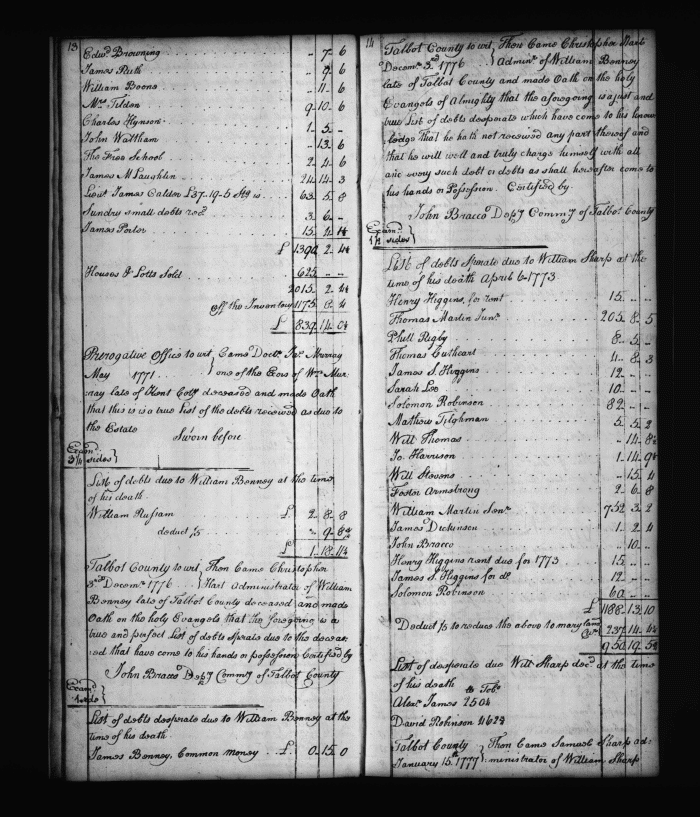 13
Edwd. Browning .. 7 6
James Ruth .. 9 6
William Boons .. 11 6
Mrs. Tilden 9 10 6
Charles Hynson 1 5 ..
John Waltham .. 13 6
The Free School 2 4 6
James McLaughlin 24 14 3
Lieut. James Calder £37-19-5 Stg is 63 5 8
Sundry small debts recd. 3 6 ..
James Porter 15 4
£ 1390 2 4½
Houses & Lotts Sold 625 .. ..
2015 2 4½
off the Inventory 1175 8 4
£ 839 14 0½
Prerogative Office to wit, Came Doctr. Jas. Murray
May 1771 } one of the Exors of Wm. Mur-
ray late of Kent Coty. deceased and made Oath
that this is is a true list of the debts received as due to
the Estate
Sworn before
Examd.
3¼ sides}
List of debts due to William Bonney at the time
of his death
William Russam £ 2 8 8
deduct ⅕ .. 9 8¾
£ 1 18 11¼
Talbot County to wit, Then Came Christopher
3d. Decemr. 1776 } Hart Administrator of William
Bonney late of Talbot County deceased and made
Oath on the holy Evangels that the foregoing is a
true and perfect List of debts Sperate due to the deceas-
ed that have come to his hands or possession Certified by
John Bracco Depy. Commy of Talbot County
Examd.
List of debts desperate due to William Bonney at the
time of his death
James Bonney, Common money £ 0 15 0
14
Talbot County to wit, Then Came Christopher Hart
Decemr. 3d. 1776 } Adminr. of William Bonney
late of Talbot County and made Oath on the holy
Evangels of Almighty that the aforegoing is a just and
true List of debts desperate which have come to his know
ledge that he hath not received any part thereof and
that he will well and truly charge himself with all
and every such debt or debts as shall hereafter come to
his hands or Possession. Certified by
John Bracco Depy Commy of Talbot County
Examd.
1½ sides}
List of debts Sperate due to William Sharp at the
time of his death April 6 1773
Henry Higgins, for rent 15 .. ..
Thomas Martin Junr. 205 8 5
Phill Rigby 8 5 ..
Thomas Cathcart 4 8 3
James S. Higgins 12 .. ..
Sarah Lee 10 .. ..
Solomon Robinson 82 .. ..
Mathew Tilghman 5 5 2
Will Thomas .. 14 8½
Jo. Harrison 1 14 9½
Will Stevens .. 15 4
Foster Armstrong 2 6 8
William Martin Senr. 752 3 2
James Dickinson 1 2 4
John Bracco .. 10 ..
Henry Higgins rent due for 1773 15 .. ..
James S. Higgins for do. 12 .. ..
Solomon Robinson 60 .. ..
£ 1188 13 10
Deduct ⅕ to reduce the above to maryland Cury. 237 14 4½
950 19 5½
List of desperate due Will Sharp decd. at the time
of his death
Alexr. James 2504
David Robinson 4623
Talbot County } Then Came Samuel Sharp ad-
January 15th. 1777 } ministrator of William Sharp